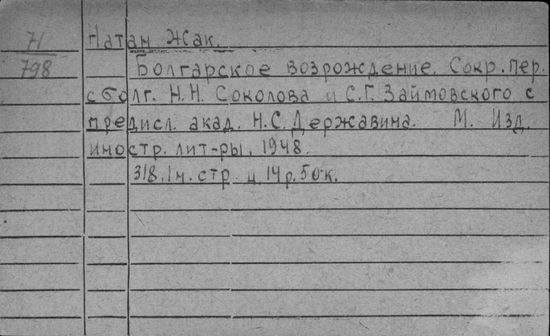 71
798
Натан Жак.
Болгарское возрождение. Сокр. пер.
с болг. Н.Н. Соколова и С.Г. Займовского с
предисл. акад. Н.С. Державина. М. Изд.
иностр. лит-ры. 1948.
318. 1н. стр. ц. 14 р. 50 к.